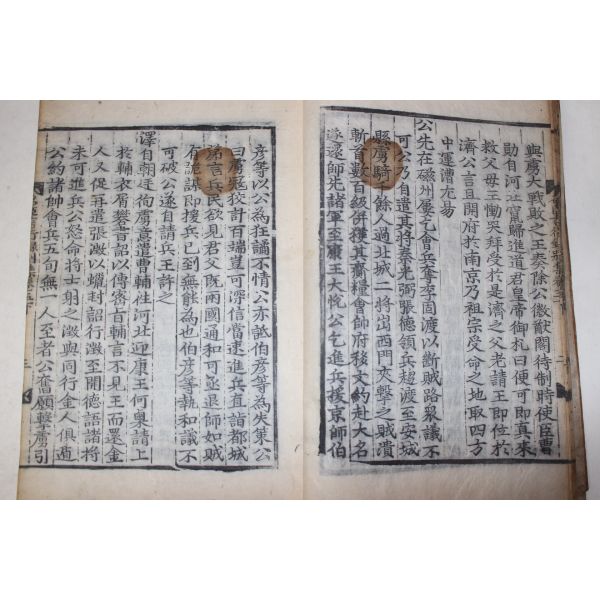 與虜大戰敗之王奏除公徽猷閣待制時使臣曹
勛自河北竄歸進道君皇帝御札曰便可即真來
救父母王慟哭拜受於是濟之父老請王即位於
濟公言且開府於南京乃祖宗受命之地取四方
中運漕尤易
公先在磁州屢乞會兵奪李固渡以斷賊路衆議不
可公乃自遣其將秦光弼張德領兵趨渡至安城
縣虜騎千餘人過北城二將出西門夾擊之賊潰
斬首數百級併獲其齎糧會帥府移文約赴大名
遂還師先諸軍至康王大悅公乞進兵援京師伯
彦等以公為狂譎不情公亦詆伯彦等為失策公
曰虜寇狡計百端豈可深信當速進兵直詣都城
諭言兵民欲見君父既兩國通和可亟退師如賊
有詭謀即援兵已到無能為也伯彦等執和議不
可破公遂自請兵王許之
澤自朝廷徇虜意遣曹輔往河北迎康王何㮚請上
於輔衣屑礬書詔以傳密旨輔言不見王而還金
人又促再遣張澂以蠟封詔行澂至開德語諸將
未可進兵公怒命將士射之澂與同行金人俱遁
公約諸帥會兵五旬無一人至者公奮願擊虜引